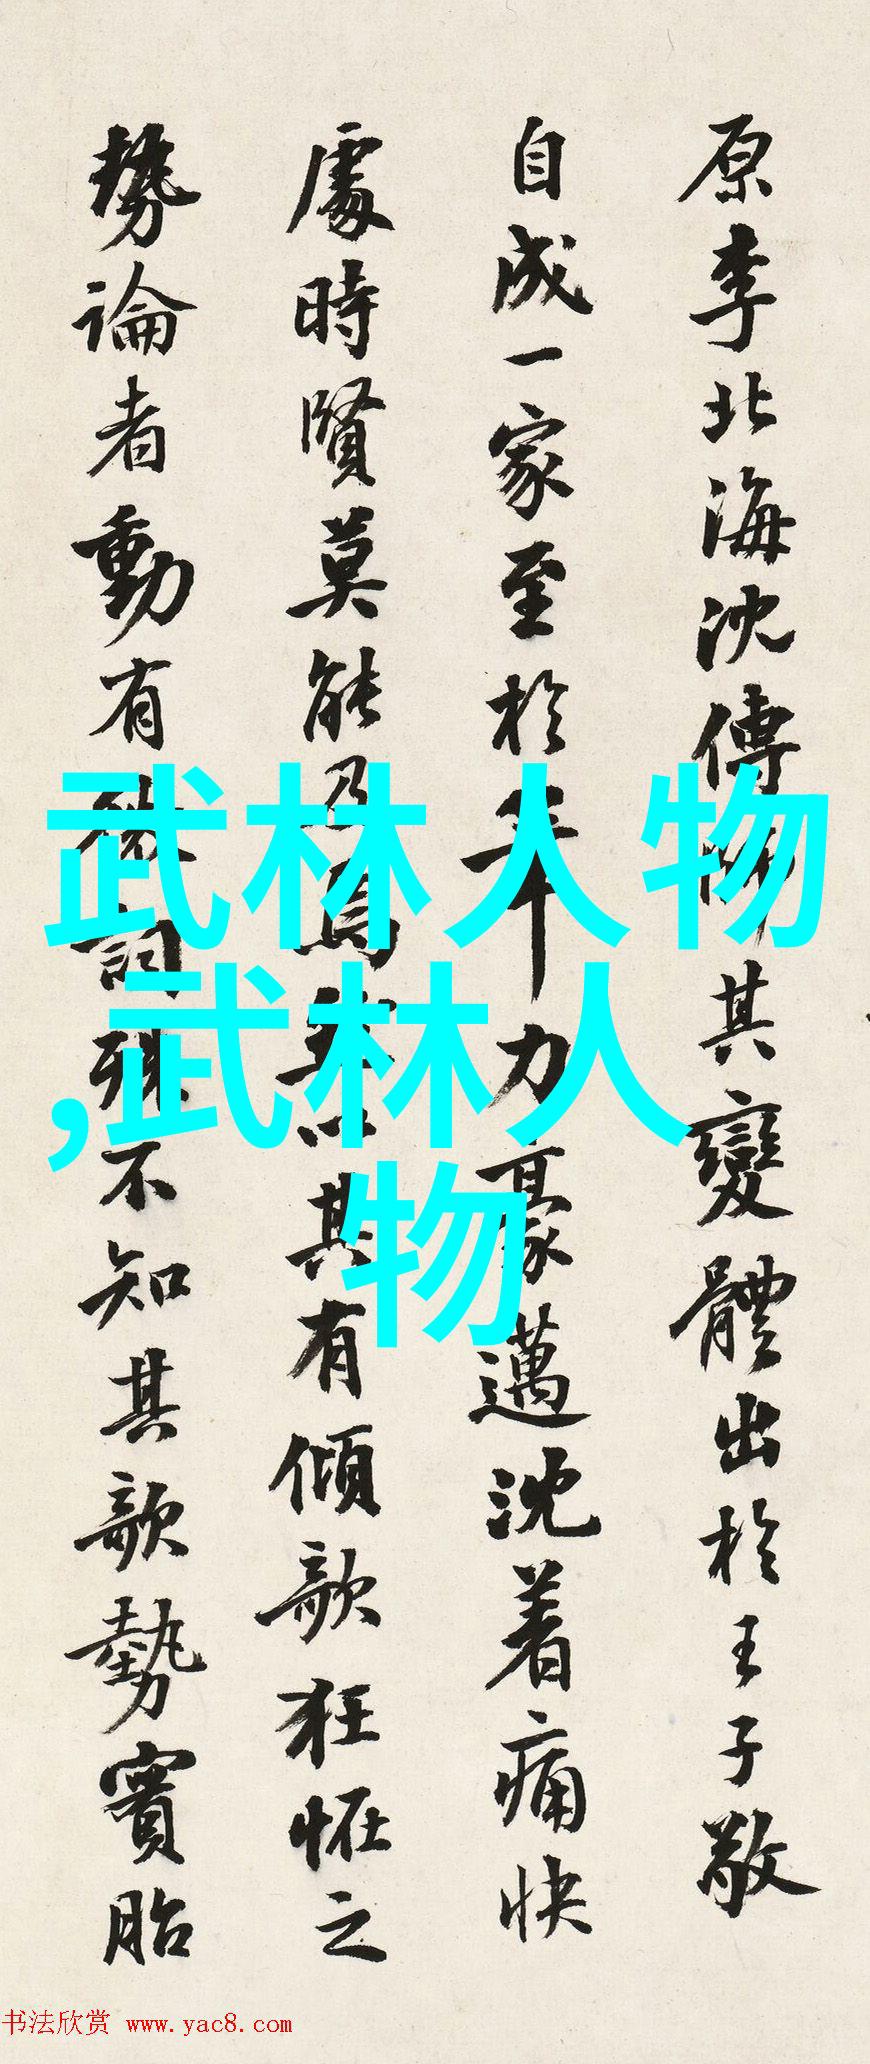 原李北海沈傳師其變體出於王子敬
自成一家至於筆力豪邁沈着痛快
處時賢莫能及焉然以其有傾欹狂怪之
勢論者動有微詞殊不知其欹勢實胎
武林人物
,武林人
物
书法欣赏 www.yac8.com